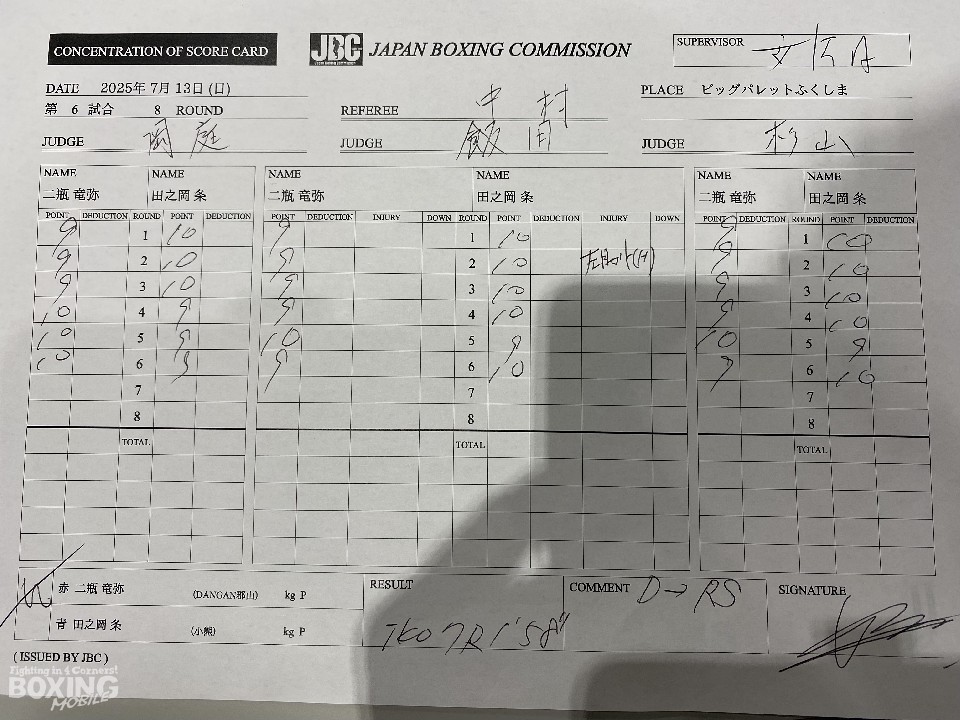 CONCENTRATION OF SCORE CARD
JBC JAPAN BOXING COMMISSION
SUPERVISOR
DATE 2025年 7月 13日 (日)
PLACE ビッグパレットふくしま
第 6 試合 8 ROUND
REFEREE 中村
JUDGE 岡庭 JUDGE 飯田 JUDGE 杉山
NAME NAME NAME NAME NAME NAME
二瓶 竜弥 田之岡 条 二瓶 竜弥 田之岡 条 二瓶 竜弥 田之岡 条
POINT DEDUCTION ROUND POINT DEDUCTION POINT DEDUCTION INJURY DOWN ROUND POINT DEDUCTION INJURY DOWN POINT DEDUCTION ROUND POINT DEDUCTION
9 1 10 9 1 10 9 1 10
9 2 10 9 2 10 9 2 10
9 3 10 9 3 10 9 3 10
10 4 9 9 4 10 9 4 10
10 5 9 10 5 9 10 5 9
10 6 9 9 6 10 9 6 10
7 7 7
8 8 8
TOTAL TOTAL TOTAL
赤 二瓶 竜弥 (DANGAN郡山) kg P
青 田之岡 条 (小熊) kg P
RESULT
TKO 7R 1'58"
COMMENT D→RS
SIGNATURE
( ISSUED BY JBC )
Fighting in 4 Corners!
BOXING
MOBILE